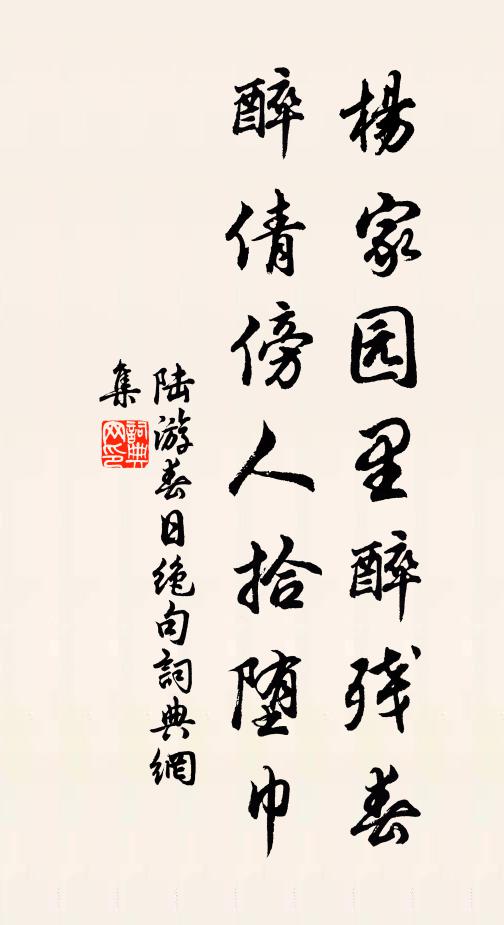 楊家园里醉残春
醉倩傍人拾堕巾
陆游春日绝句詞典網
集
詞典网印